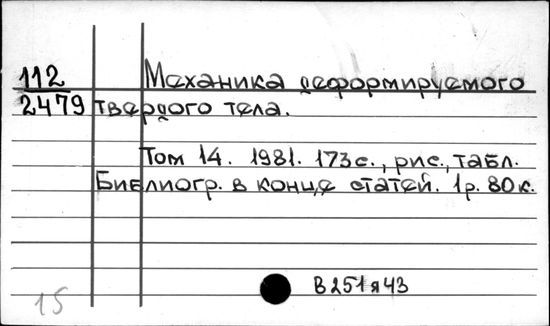 112
2479
Механика деформируемого
твердого тела.
Том 14. 1981. 173с., рис., табл.
Библиогр. в конце статей. 1р. 80к.
15
В251я43